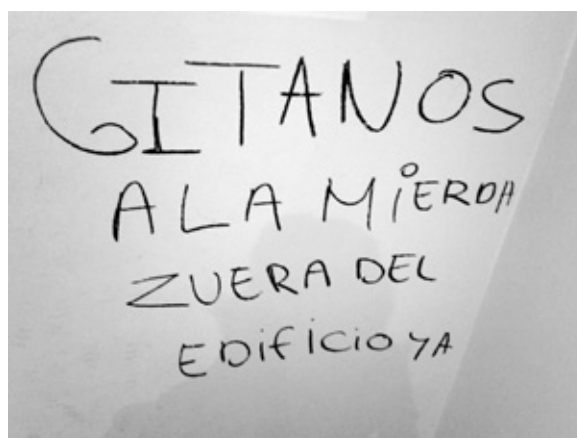 GITANOS
A LA MiERDA
ZUERA DEL
EDifiCio YA